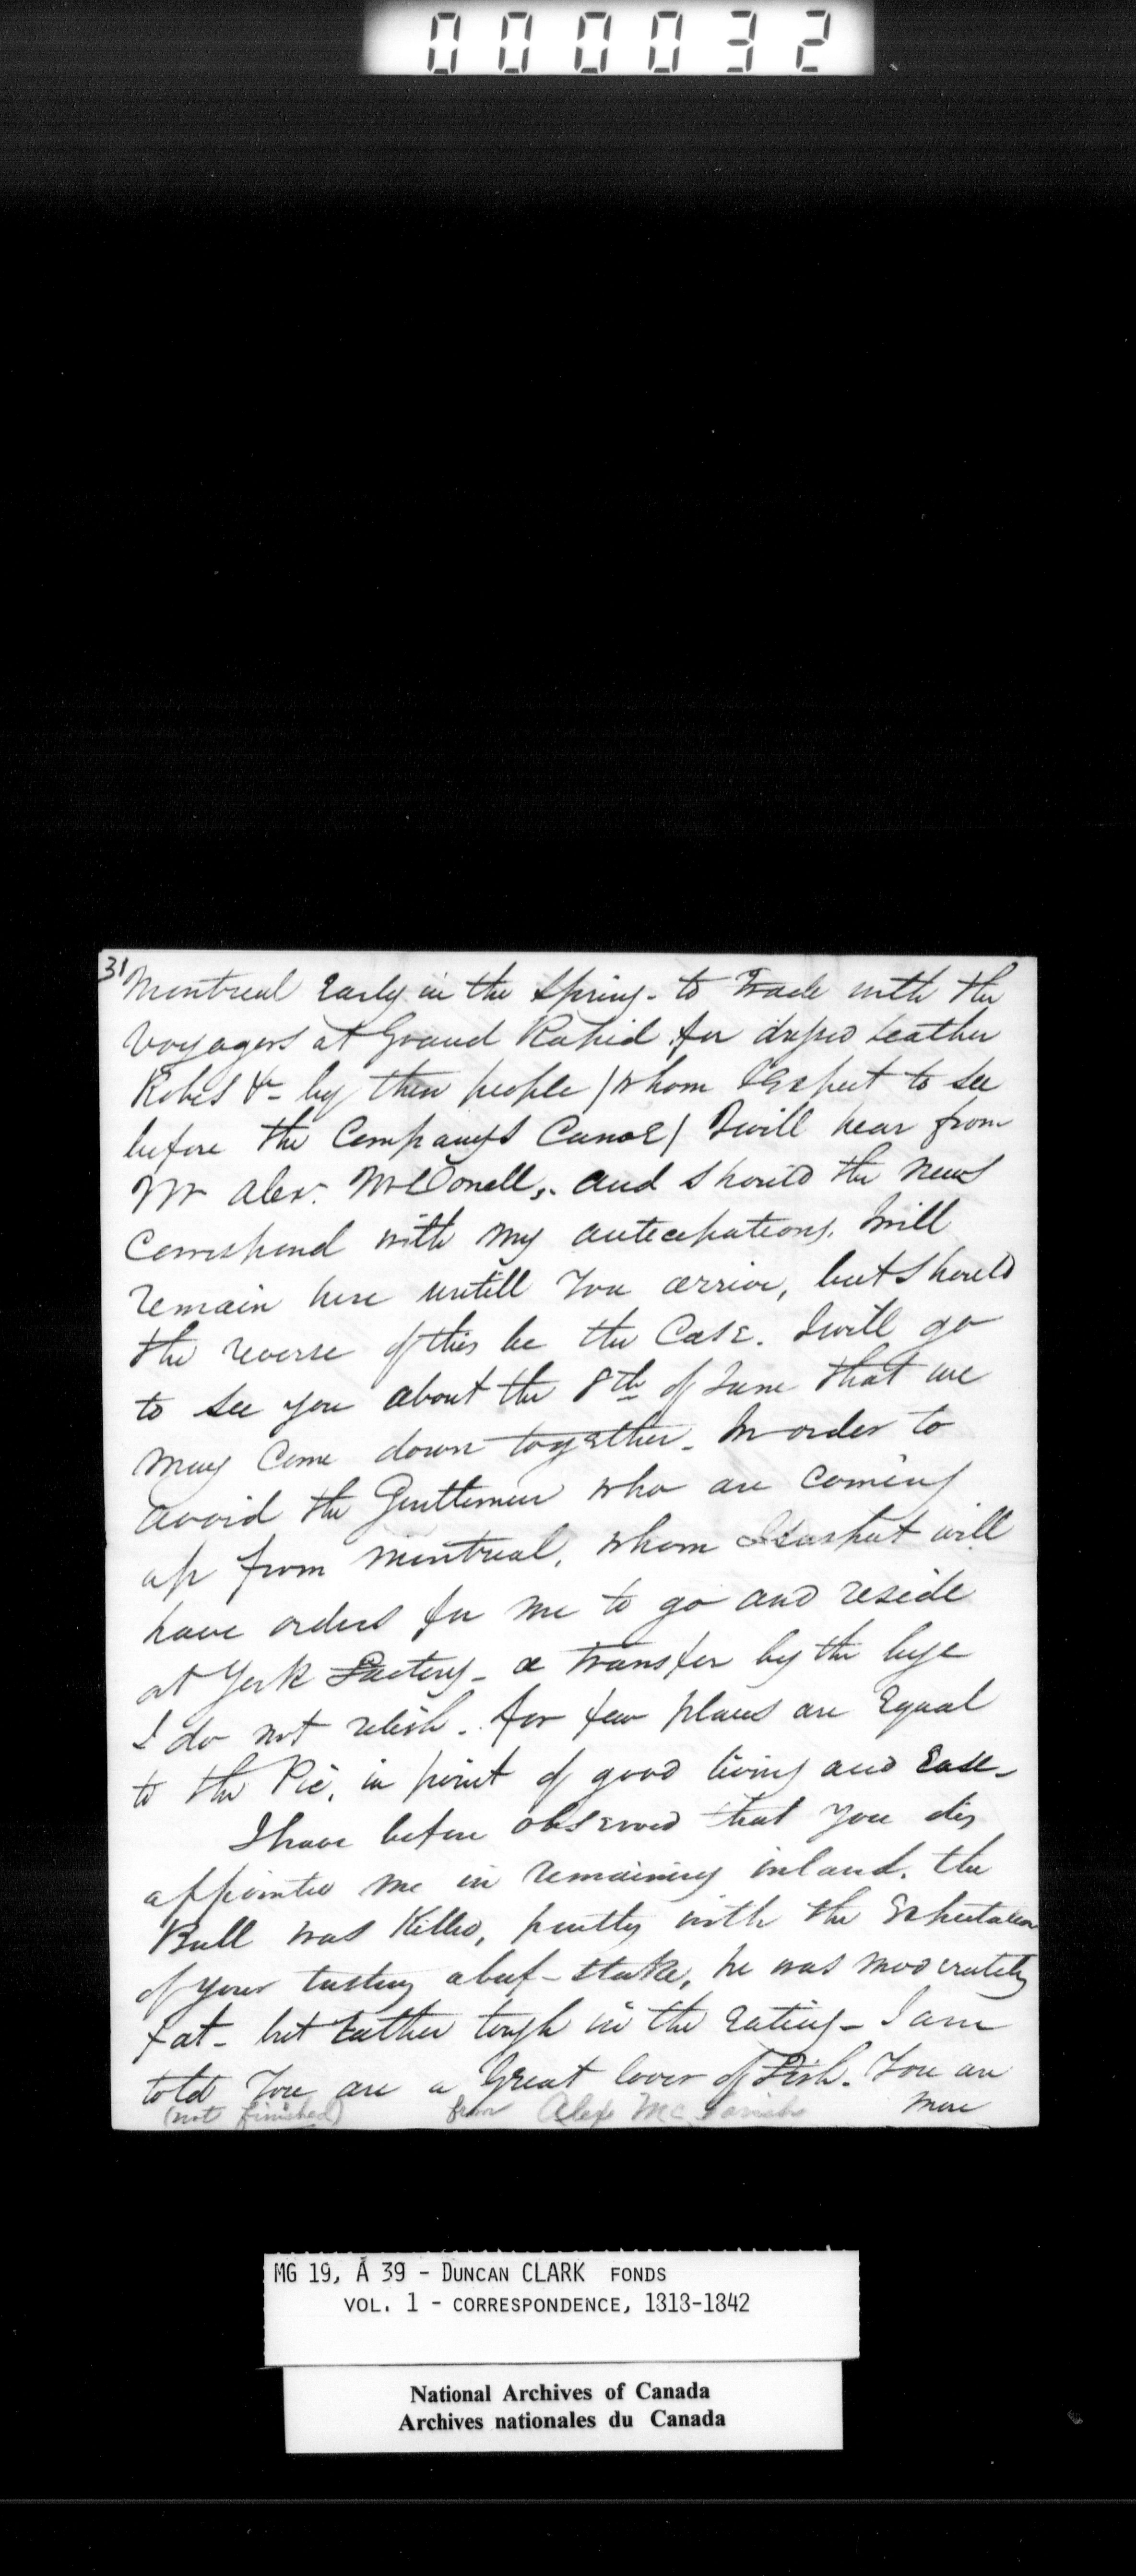 000032
31
Montreal Early in the Spring - to Trade with the
Voyagers at Grand Rapid for dresed Leather
Robes &c - by these people / whom I Expect to see
before the Companys Canoe / I will hear from
Mr Alexr. McDonell, and should the news
Correspond with my antecepations, I will
remain here untill You arrive, but should
the reverse of this be the Case. I will go
to see you about the 8th of June that we
may Come down together - In order to
avoid the Gentlemen who are coming
up from Montreal, whom I Suspect will
have orders for me to go and reside
at York Factory - a transfer by the bye
I do not relish - for few places are Equal
to the Pic, in point of good living and Ease -
I have before observed that you dis
appointed me in remaining inland. the
Bull was Killed, partly with the Expectation
of your tasting a beef-stake, he was moderately
fat - but rather tough in the Eating - I am
told You are a Great lover of Fish. You are
more
(not finished) from Alex McTavish
MG 19, A 39 - DUNCAN CLARK FONDS
VOL. 1 - CORRESPONDENCE, 1813-1842
National Archives of Canada
Archives nationales du Canada